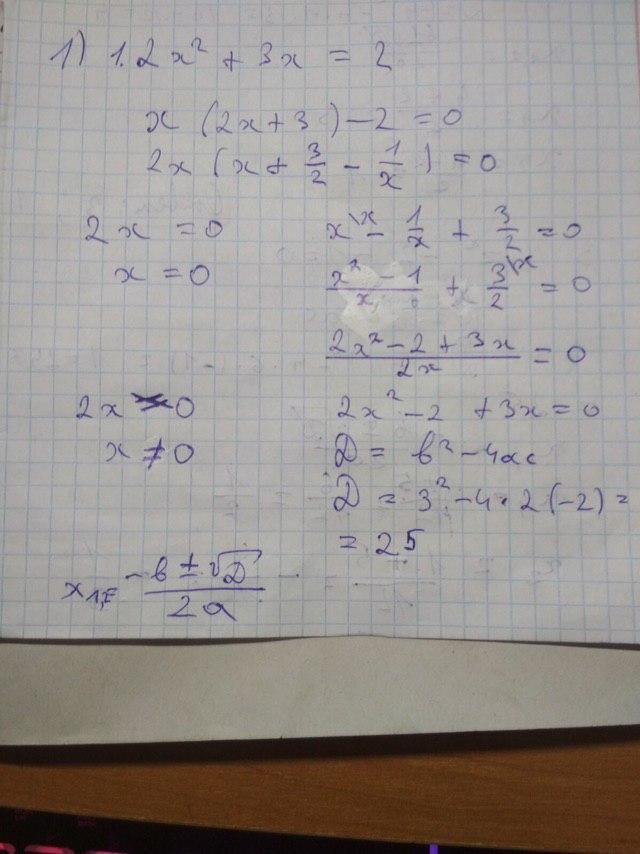 1) 1. 2x² + 3x = 2
x (2x+3) - 2 = 0
2x (x + 3/2 - 1/x) = 0
2x = 0
x = 0
x\x - 1/x + 3/2 = 0
x² - 1/x + 3/2\x = 0
2x² - 2 + 3x/2x = 0
2x ≠ 0
x ≠ 0
2x² - 2 + 3x = 0
D = b² - 4ac
D = 3² - 4 · 2 (-2) =
= 25
x₁,₂ - b ± √D / 2a